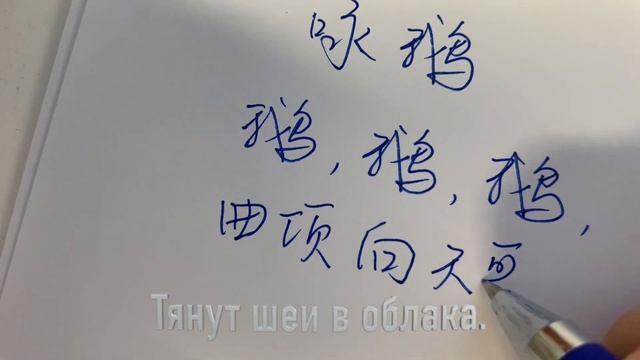 咏鹅
鹅,鹅,鹅,
曲项向天可
Тянут шеи в облака.